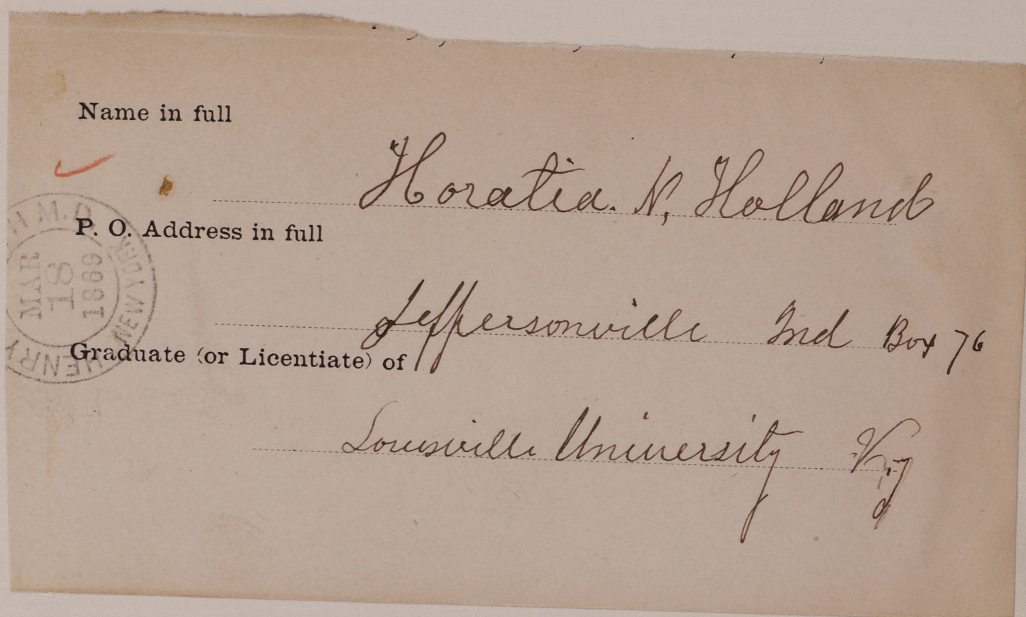 Name in full
Horatia. N. Holland
P. O. Address in full
Jeffersonville Ind Box 76
Graduate (or Licentiate) of
Louisville University Ky
HENRY M.D. NEW YORK
MAR
18
1889